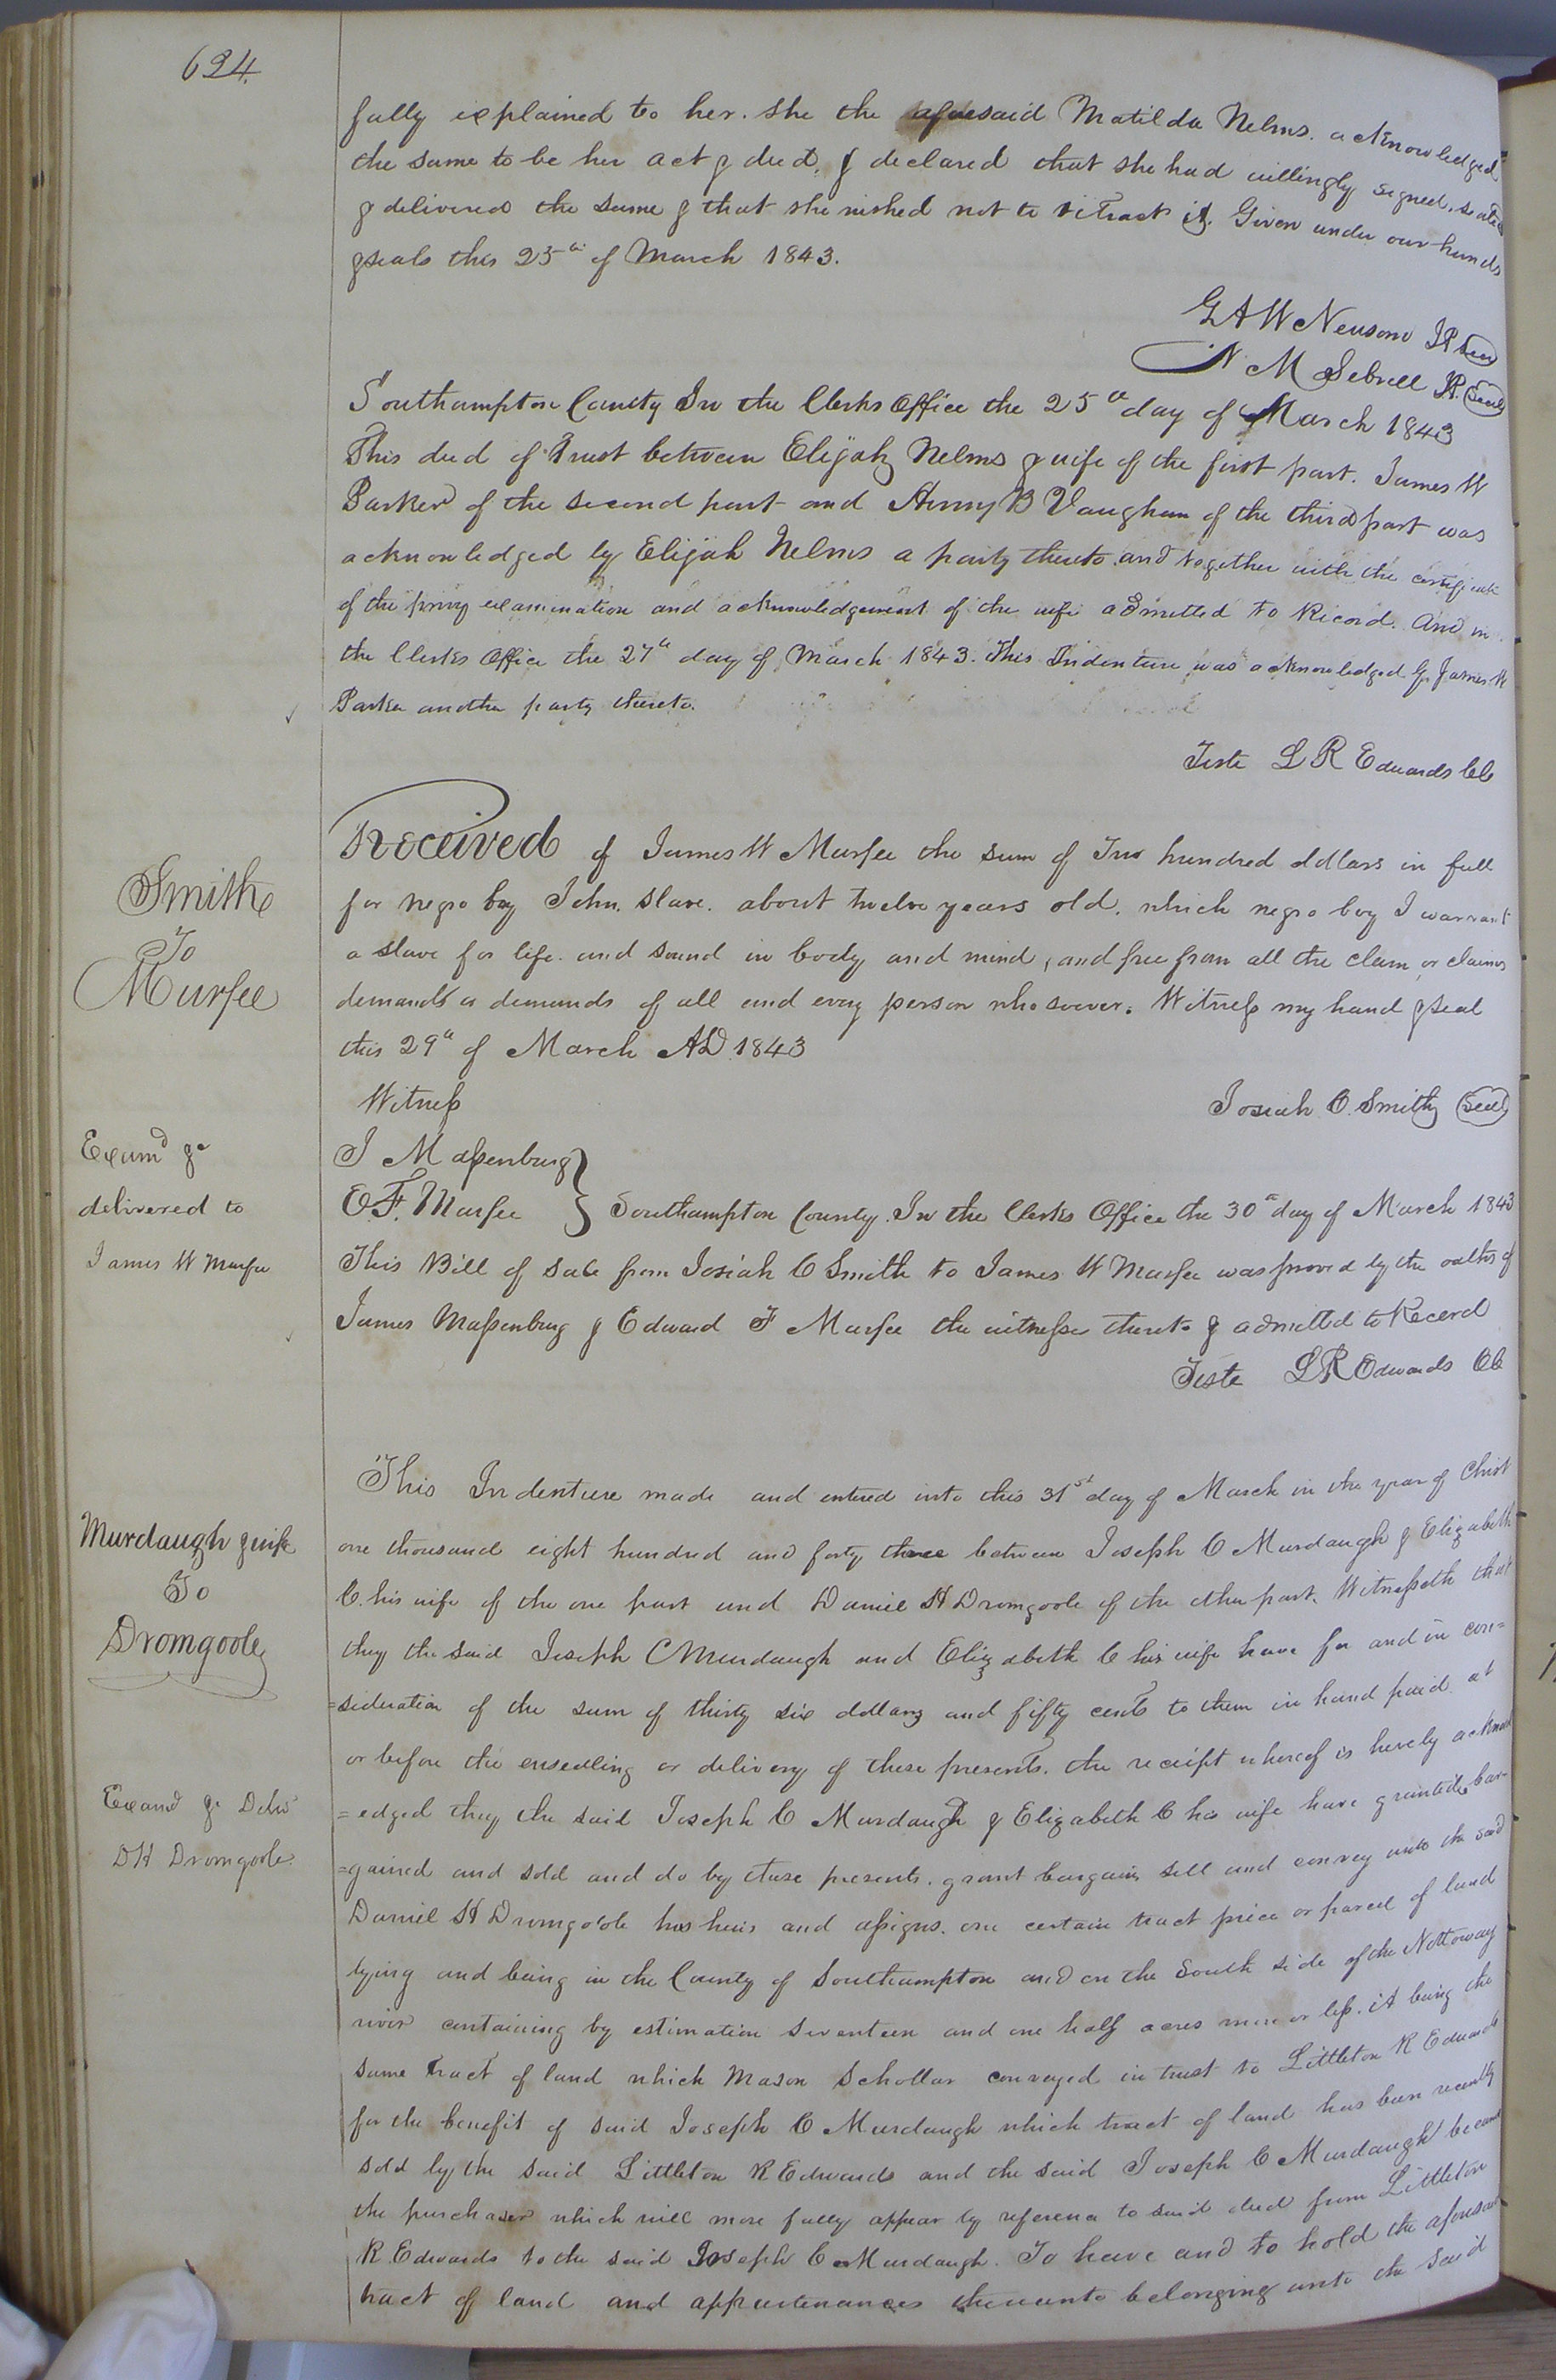 694.
fully explained to her. she the aforesaid Matilda Nelms. acknowledged
the same to be her act & deed, & declared that she had willingly signed, sealed
& delivered the same & that she wished not to retract it. Given under our hands
& seals this 25th of March 1843.
G A W Newsom JP Seal
N M Sebrell JP. Seal
Southampton County In the Clerks Office the 25th day of March 1843
This deed of Trust between Elijah Nelms & wife of the first part. James W
Parker of the second part and Henry B Vaughan of the third part was
acknowledged by Elijah Nelms a party thereto and together with the certificate
of the privy examination and acknowledgement of the wife admitted to Record. And in
the Clerks Office the 27th day of March 1843. This Indenture was acknowledged by James W
Parker another party thereto.
Teste L R Edwards CC
Smith
To
Murfee
Received of James W Murfee the sum of Two hundred dollars in full
for negro boy John. slave. about twelve years old. which negro boy I warrant
a slave for life. and sound in body and mind, and free from all the claim or claims
demand or demands of all and every person whosoever. Witness my hand & seal
this 29th of March AD 1843
Witness
Josiah C. Smith Seal
J Massenburg
E. F. Murfee } Southampton County. In the Clerks Office the 30th day of March 1843
Examd &c
delivered to
James W Murfee
This Bill of Sale from Josiah C Smith to James W Murfee was proved by the oaths of
James Massenburg & Edward F Murfee the witnesses thereto & admitted to Record
Teste L R Edwards CC
Murdaugh & wife
To
Dromgoole
Examd & Delvd
D H Dromgoole
This Indenture made and entered into this 31st day of March in the year of Christ
one thousand eight hundred and forty three between Joseph C Murdaugh & Elizabeth
C. his wife of the one part and Daniel H Dromgoole of the other part. Witnesseth that
they the said Joseph C Murdaugh and Elizabeth C his wife have for and in con=
=sideration of the sum of thirty six dollars and fifty cents to them in hand paid at
or before the ensealing or delivery of these presents. the receipt whereof is hereby acknowl
=edged they the said Joseph C Murdaugh & Elizabeth C his wife have granted, bar=
=gained and sold and do by these presents. grant bargain sell and convey unto the said
Daniel H Dromgoole his heirs and assigns. one certain tract piece or parcel of land
lying and being in the County of Southampton and on the South side of the Nottoway
river containing by estimation seventeen and one half acres more or less. it being the
same tract of land which Mason Schollar conveyed in trust to Littleton R Edwards
for the benefit of said Joseph C Murdaugh which tract of land has been recently
sold by the said Littleton R Edwards and the said Joseph C Murdaugh became
the purchaser which will more fully appear by reference to said deed from Littleton
R Edwards to the said Joseph C Murdaugh. To have and to hold the aforesaid
tract of land and appurtenances thereunto belonging unto the said